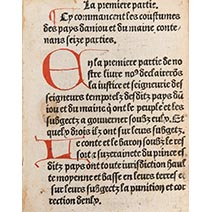 La premiere partie.
Cy commancent les coustumes
des pays daniou et du maine conte
nans seize parties.
En la premiere partie de no
stre liure no⁹ declairerōs
la iustice et seigneurie des
seigneurs temporelz desditz pays dā
iou et du maine q̄ ont le peuple et les
subgectz a gouuerner soubz eulx. Et
quelz drois ilz ont sur leurs subgetz.
Le conte et le baron soubz le res
sort et souzerainete du prince es
ditz pays ont toute iurisdiction haulte
moyenne et basse en leurs terres et
sur leurs subgectz la punition et cor
rection